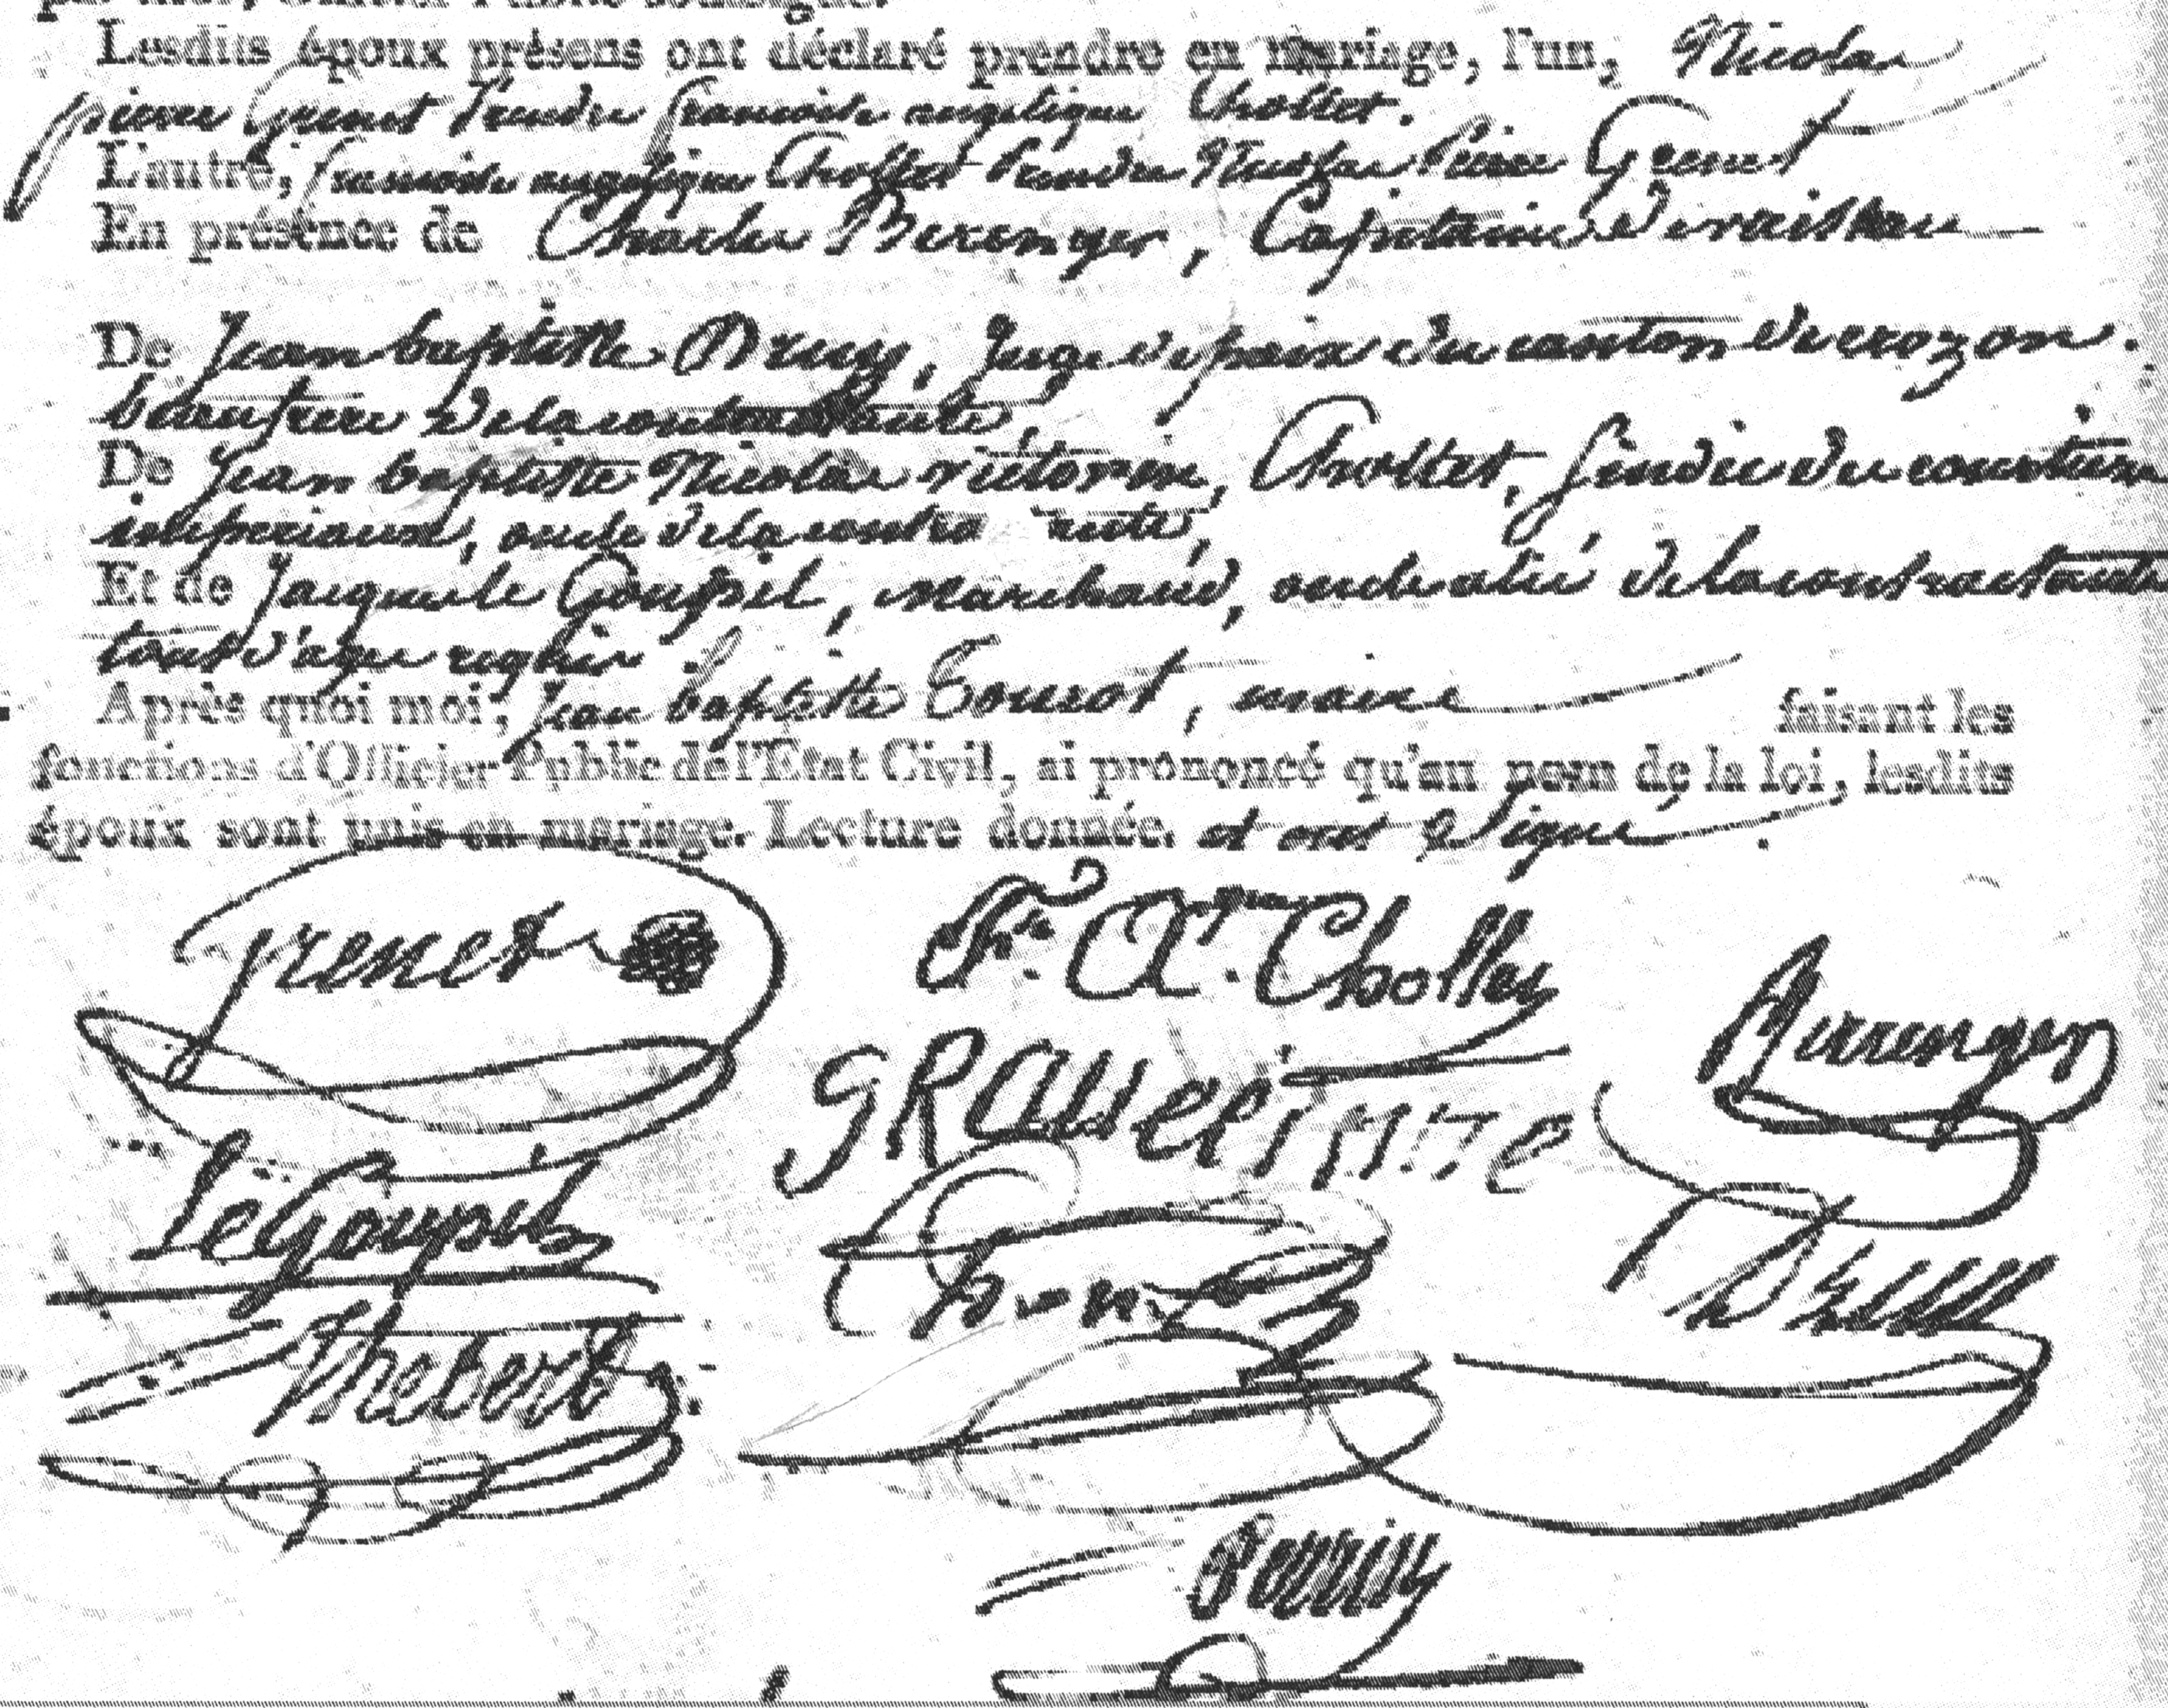 Lesdits époux présens ont déclaré prendre en mariage, l'un, Nicolas
pierre Grenet Prendre francoise angelique Chollet.
L'autre, francoise angelique Chollet Prendre Nicolas Pierre Grenet
En présence de Charles Berenger, Capitaine de vaisseau
De Jean baptiste Druy, Juge de paix du canton de crozon.
beaufrere de la contractante,
De Jean baptiste Nicolas victorin, Chollet, sindic du
imperiaux, oncle de la contra ante,
Et de Jacques le Goupil, Marchand, oncle alié de la contractante
tous d'age
Après quoi moi, Jean baptiste, maire faisant les
fonctions d'Officier Public de l'Etat Civil, ai prononcé qu'au nom de la loi, lesdits
époux sont unis en mariage. Lecture donnée. et ont Signé.
Grenet
Fr. A. Chollet
Berrenger
LeGoupil
Thebert
Perrin